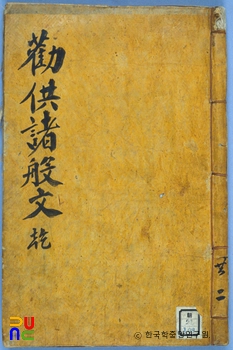 勸供諸般文
乾
共二
UNC
© 한국학중앙연구원